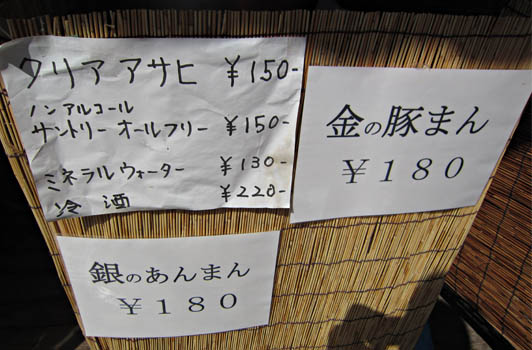 クリア アサヒ ¥150-
ノンアルコール
サントリー オールフリー ¥150-
ミネラルウォーター ¥130-
冷酒 ¥220-
金の豚まん
¥180
銀のあんまん
¥180